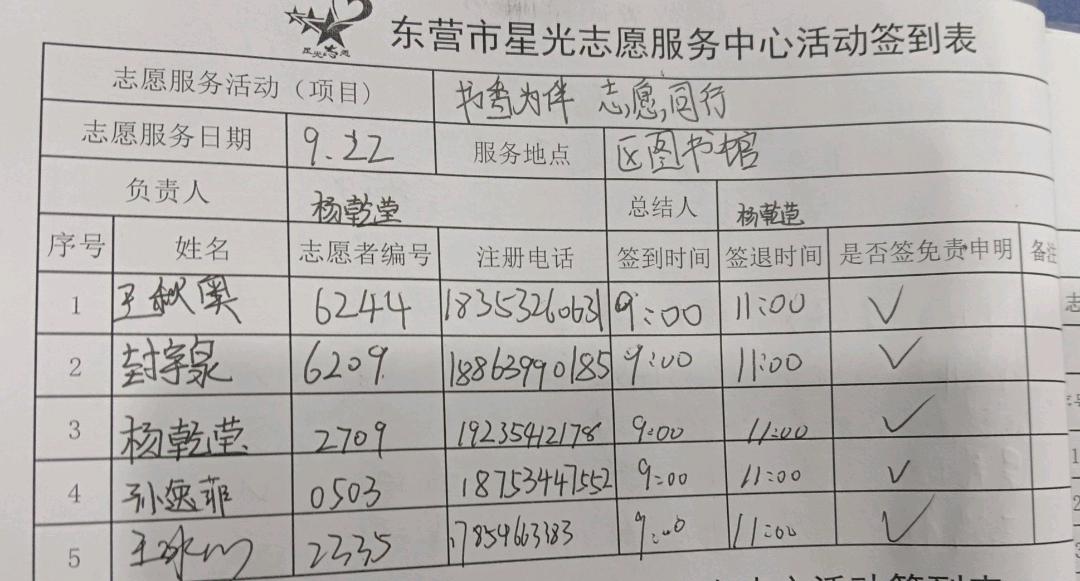 星光志愿
东营市星光志愿服务中心活动签到表
志愿服务活动（项目） 书香为伴 志愿同行
志愿服务日期 9.22 服务地点 区图书馆
负责人 杨乾莹 总结人 杨乾莹
序号 姓名 志愿者编号 注册电话 签到时间 签退时间 是否签免责申明 备注
1 王秋奥 6244 18353260631 9:00 11:00 ✓
2 封宇泉 6209 18863990185 9:00 11:00 ✓
3 杨乾莹 2709 19235412178 9:00 11:00 ✓
4 孙逸菲 0503 18753447552 9:00 11:00 ✓
5 王冰 2335 17854663383 9:00 11:00 ✓